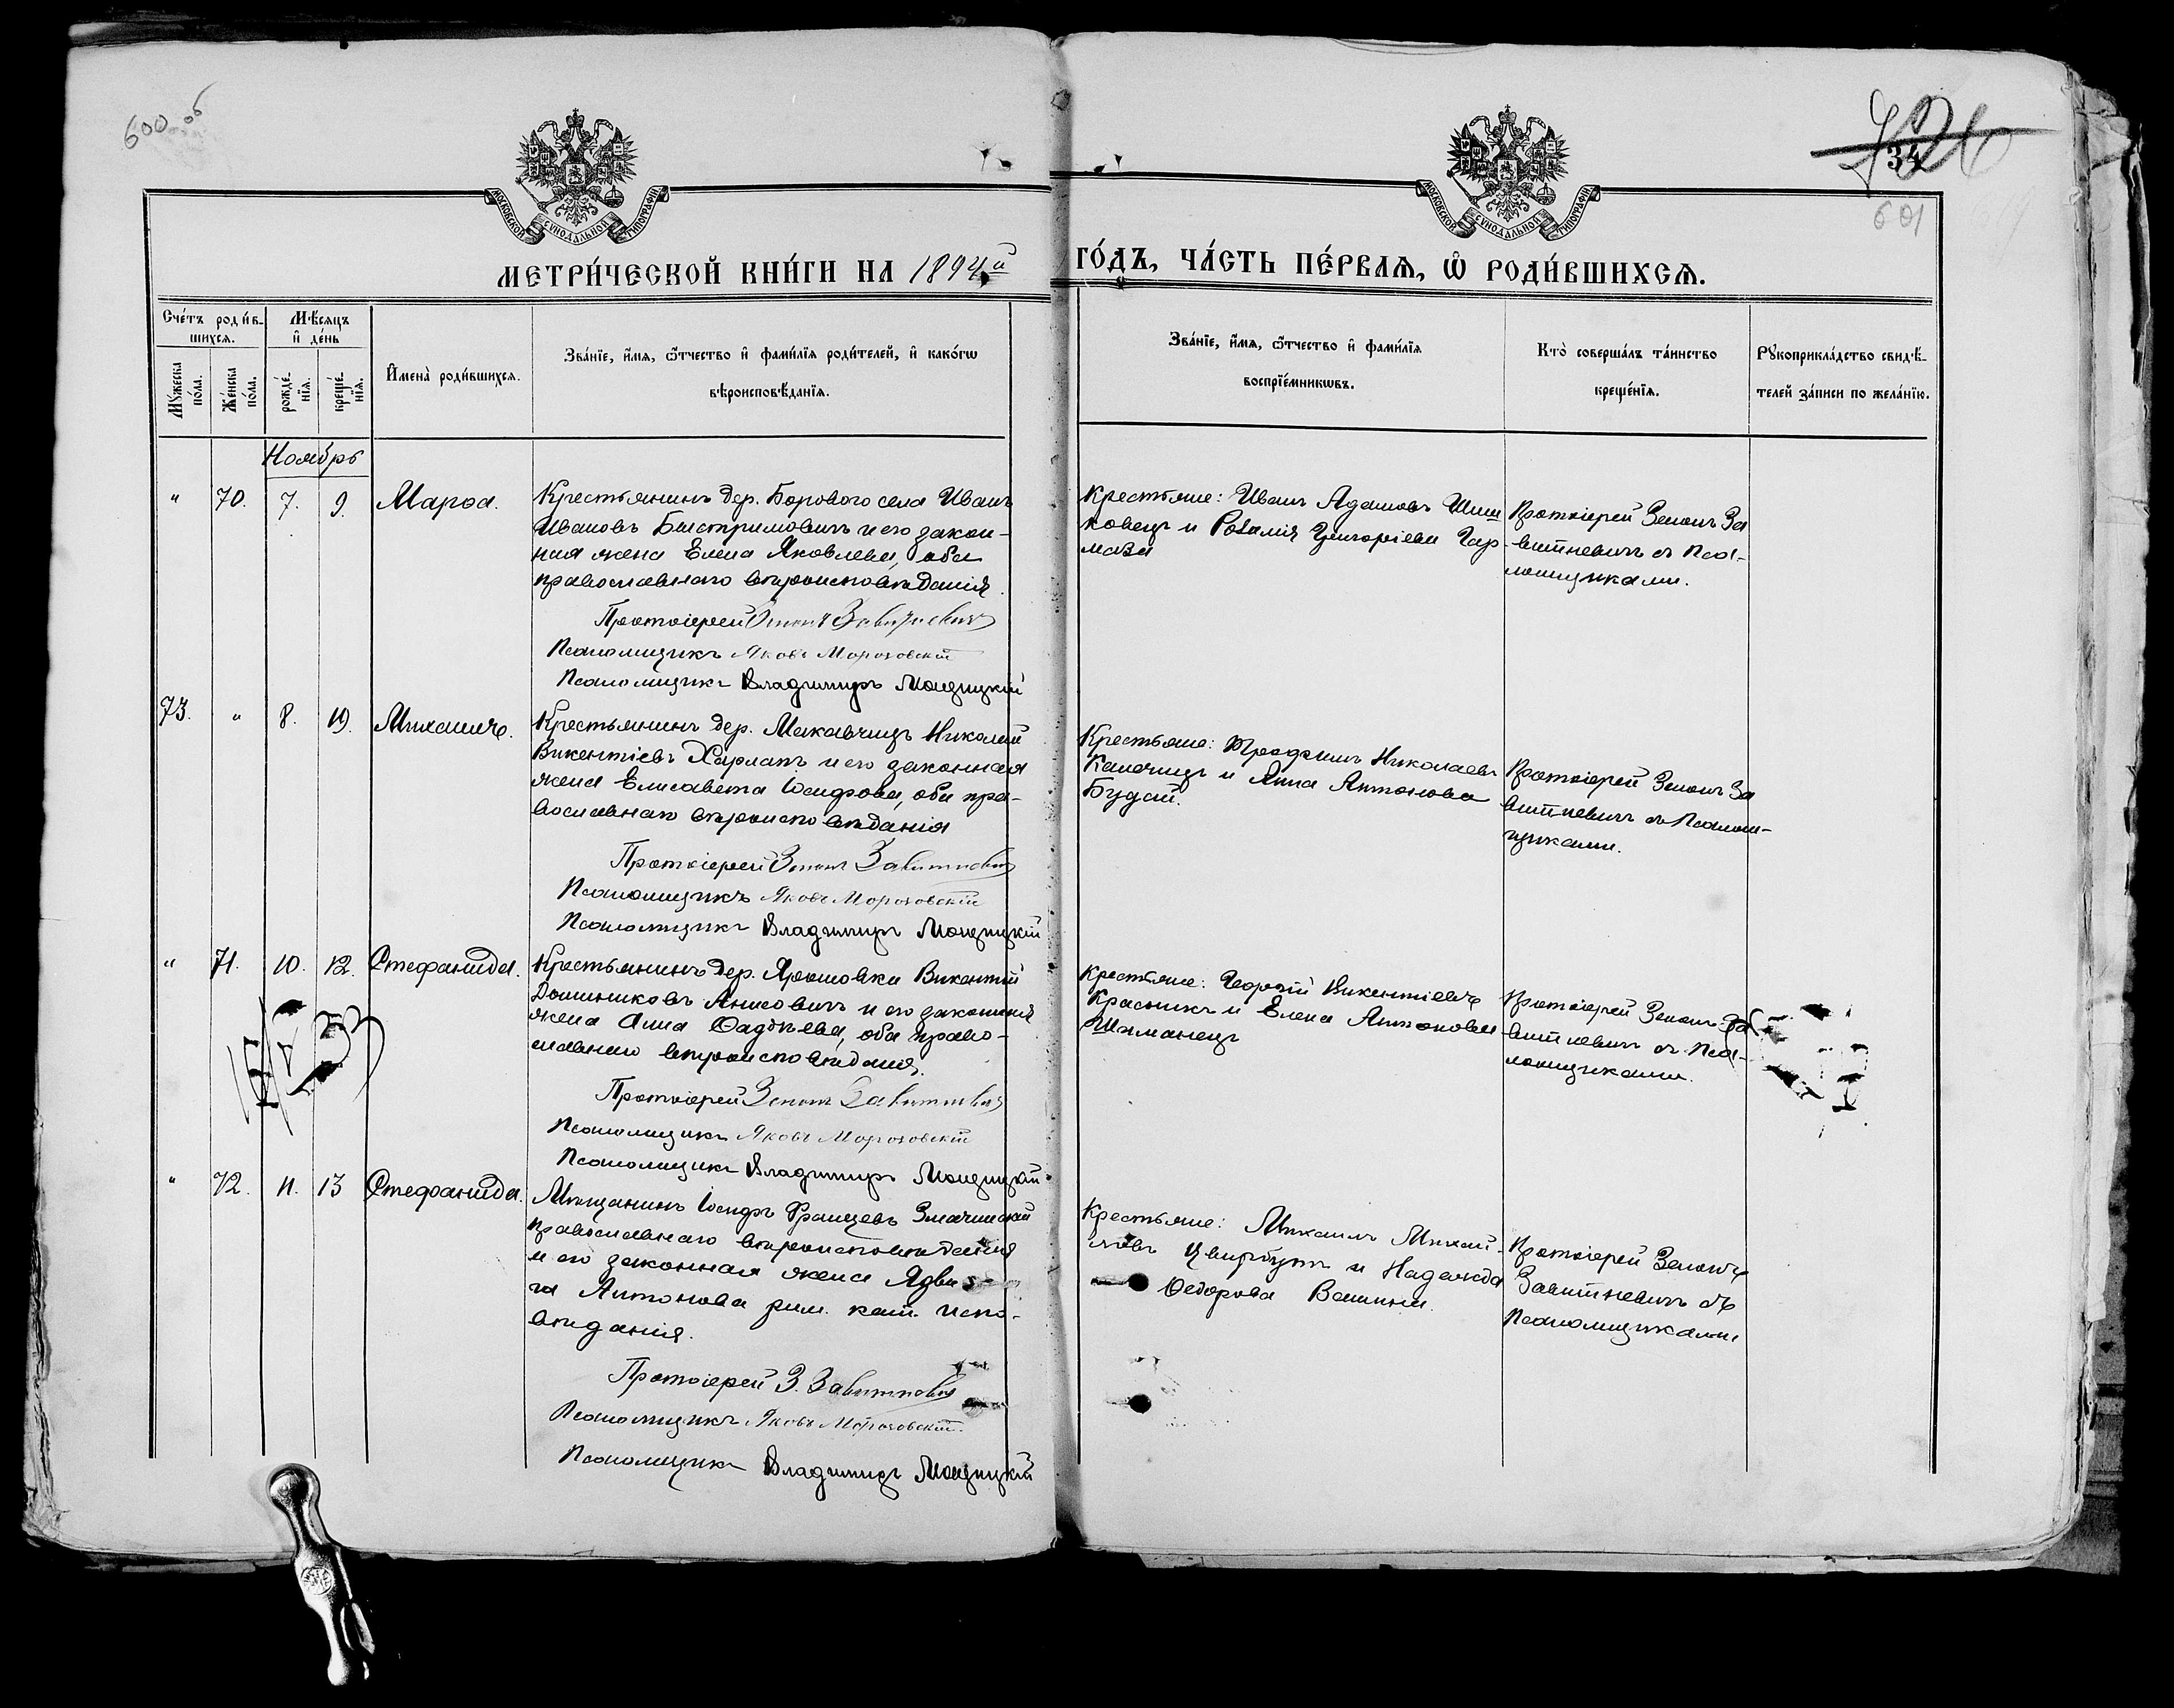 600 об
34
601
МОСКОВСКОЙ СѴНОДАЛЬНОЙ ТИПОГРАФІИ
МОСКОВСКОЙ СѴНОДАЛЬНОЙ ТИПОГРАФІИ
МЕТРИ́ЧЕСКОЙ КНИ́ГИ НА 1894й ГО́ДЪ, ЧА́СТЬ ПЕ́РВАѦ, Ѡ҆ РОДИ́ВШИХСѦ.
Сче́тъ роди́в-
шихсѧ.
Мꙋ́жеска по́ла.
Же́нска по́ла.
Мѣ́сѧцъ
и҆ де́нь
рожде́-нїѧ.
креще́-нїѧ.
И҆мена̀ роди́вшихсѧ.
Зва́нїе, и҆́мѧ, ѻ҆́тчество и҆ фами́лїѧ роди́телей, и҆ како́гѡ
вѣроисповѣ́данїѧ.
Зва́нїе, и҆́мѧ, ѻ҆́тчество и҆ фами́лїѧ
воспрїе́мникѡвъ.
Кто̀ соверша́лъ та́инство
креще́нїѧ.
Рꙋкоприкла́дство свидѣ́-
телей за́писи по жела́нїю.
Ноябрь
" 70. 7. 9. Марѳа.
Крестьянинъ дер. Борового села Иванъ
Ивановъ Быстримовичъ и его закон-
ная жена Елена Яковлева, оба
православнаго вѣроисповѣданія.
Протоіерей Зенонъ Завитневичъ
Псаломщикъ Яковъ Мороховскій
Псаломщикъ Владимиръ
Крестьяне: Иванъ Адамовъ Шиш
ковецъ и Розалія Григоріева Гар-
маза
Протоіерей Зенонъ За
витневичъ съ Псал-
ломщиками.
73. " 8. 10. Михаилъ.
Крестьянинъ дер. Макавчицъ Николай
Викентіевъ Харлапъ и его законная
жена Елисавета Іосифова, оба пра-
вославнаго вѣроисповѣданія
Протоіерей Зенонъ Завитневичъ
Псаломщикъ Яковъ Мороховскій
Псаломщикъ Владимиръ
Крестьяне: Николаевъ
и Анна Антонова
Будай.
Протоіерей Зенонъ За
витневичъ съ Псалом-
щиками.
" 71. 10. 12. Стефанида.
Крестьянинъ дер. Ярошовки Викентій
Доминиковъ Анисовичъ и его законная
жена Анна Фадѣева, оба право-
славнаго вѣроисповѣданія.
Протоіерей Зенонъ Завитневичъ
Псаломщикъ Яковъ Мороховскій
Псаломщикъ Владимиръ
Крестьяне: Георгій Викентіевъ
Красникъ и Елена Антонова
Шиманецъ
Протоіерей Зенонъ За
витневичъ съ Псал-
ломщиками.
" 72. 11. 13 Стефанида.
Мѣщанинъ Іосифъ Францевъ
православнаго вѣроисповѣданія
и его законная жена Ядви-
га Антонова рим. кат. испо-
вѣданія.
Протоіерей З. Завитневичъ
Псаломщикъ Яковъ Мороховскій.
Псаломщикъ Владимиръ
Крестьяне: Михаилъ Михай-
ловъ и Надежда
Ѳедорова
Протоіерей Зенонъ
Завитневичъ съ
Псаломщиками